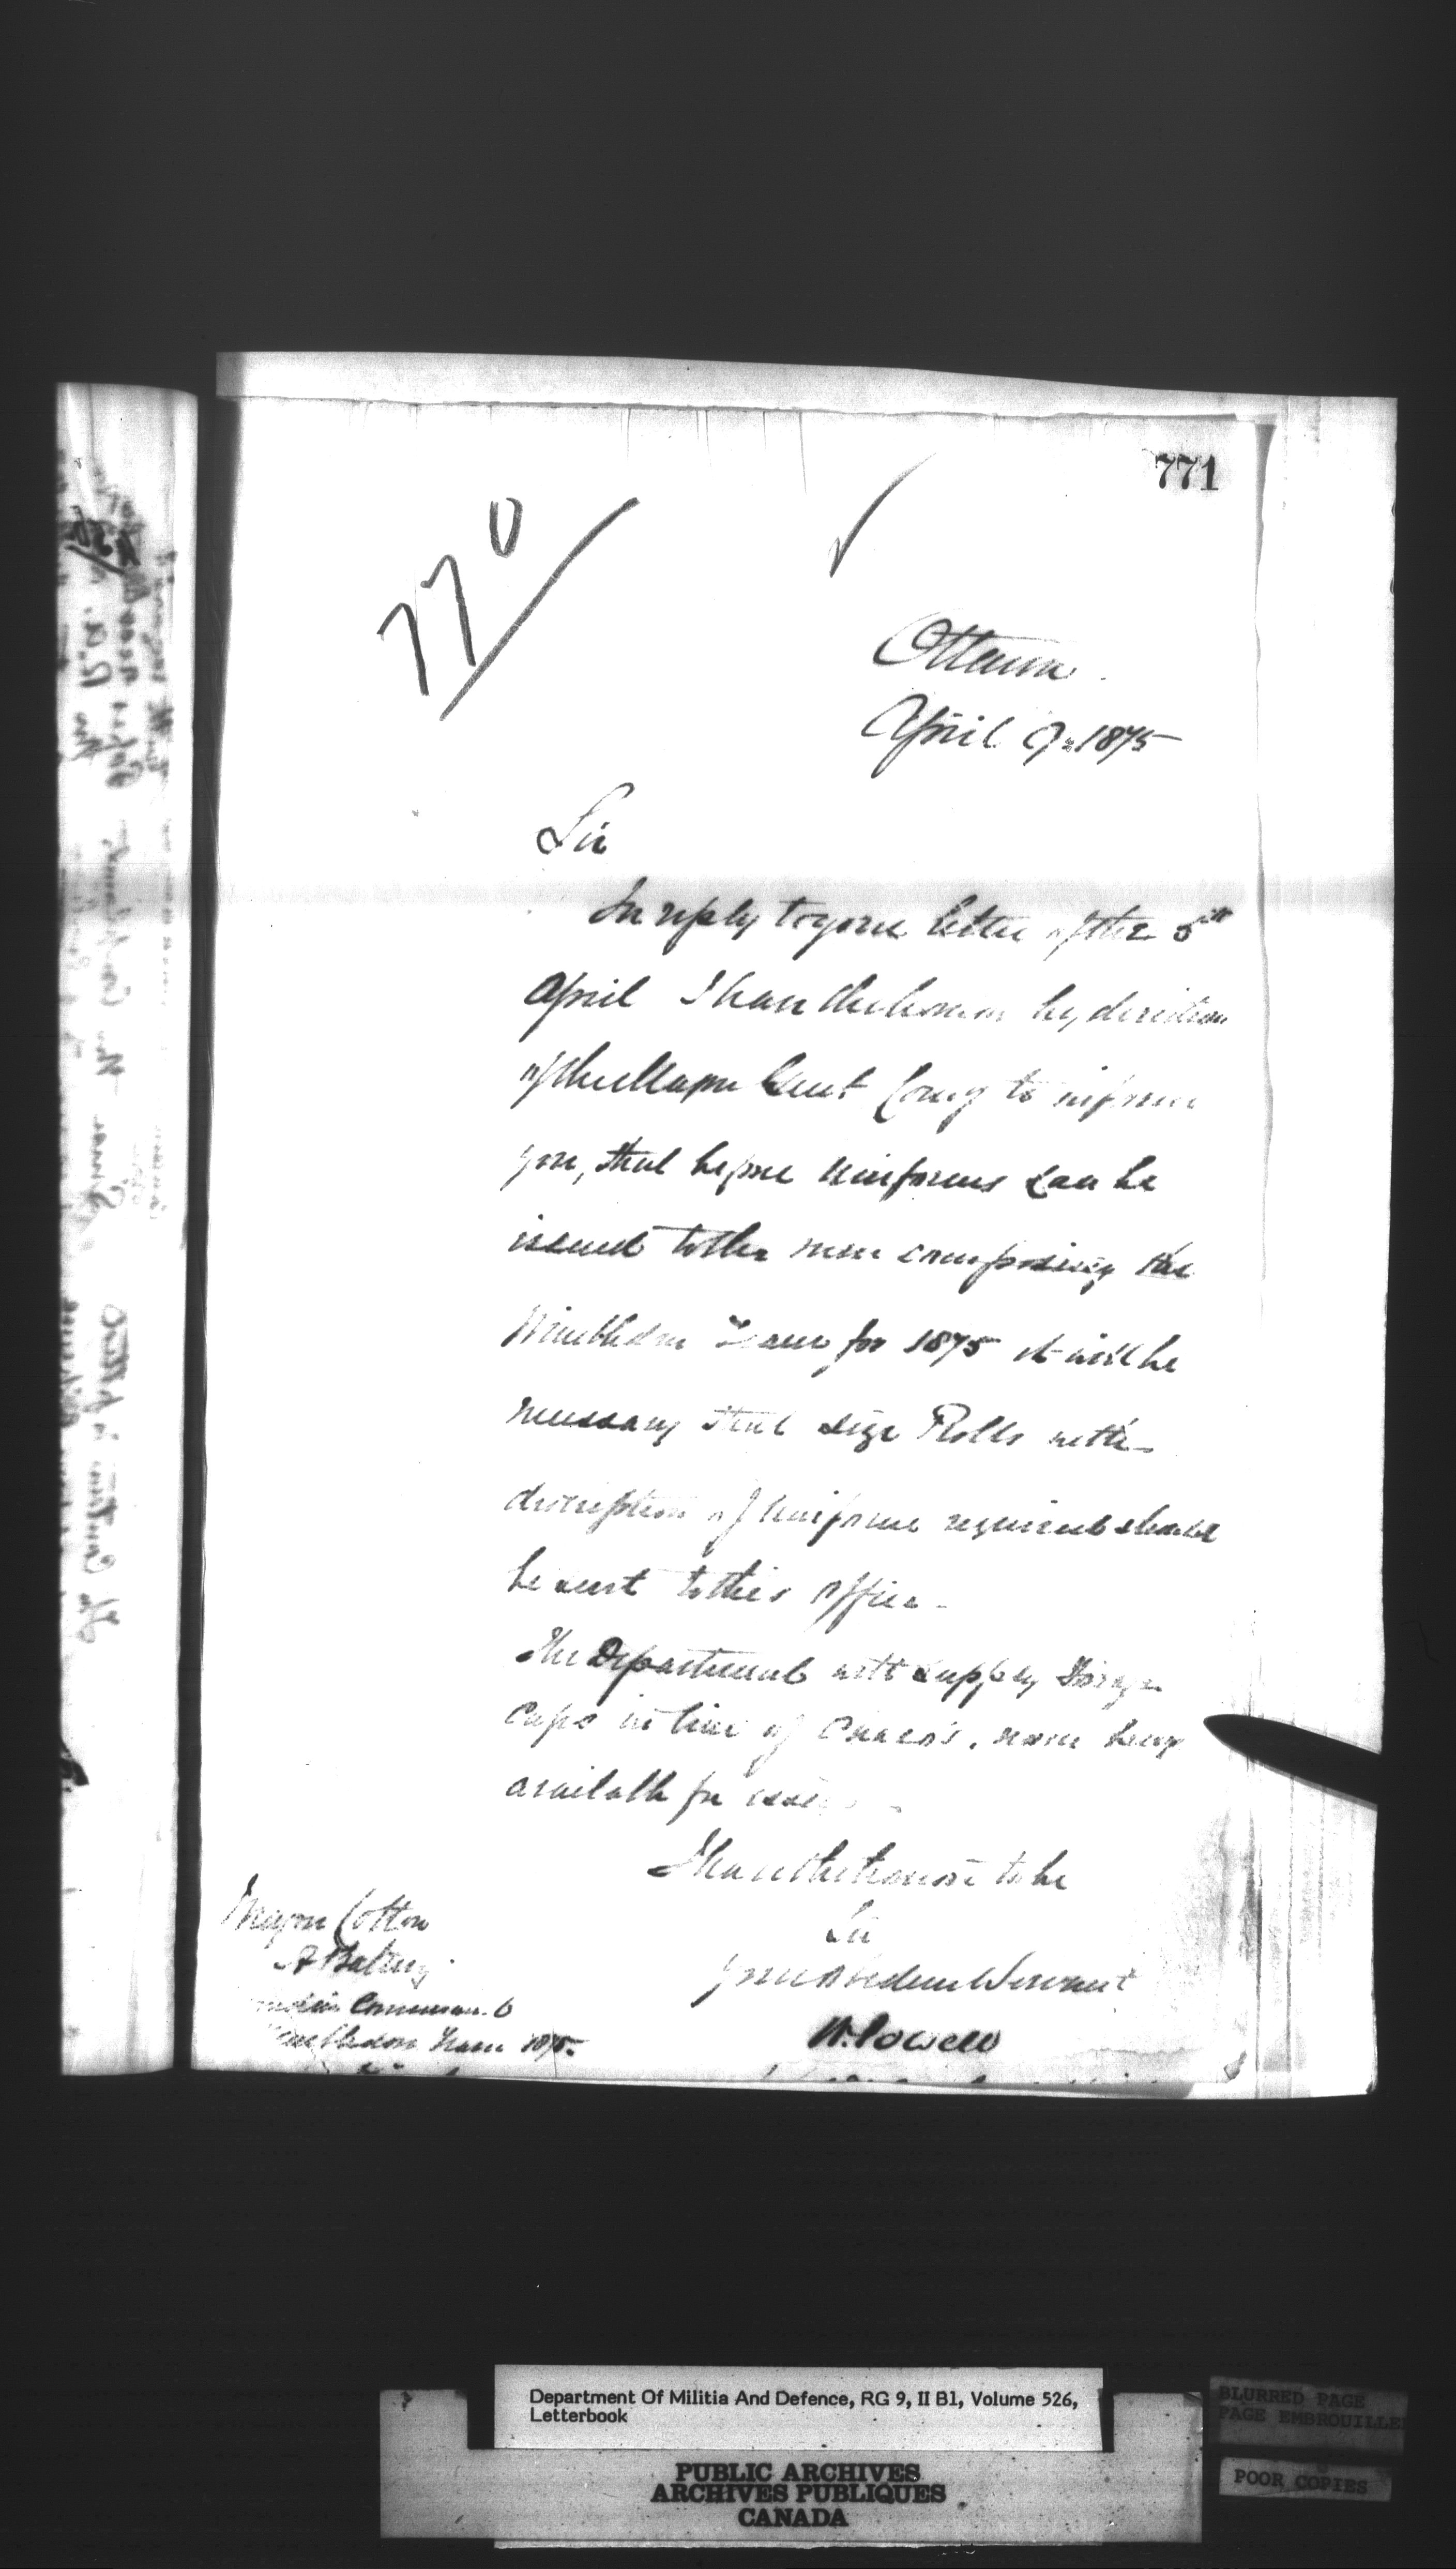 771
770
Ottawa
April 9. 1875
Sir
In reply to your letter of the 5th
April I have the honor by direction
of the Major Genl Comg to inform
you, that before Uniforms can be
issued to the men composing the
Wimbledon Team for 1875 it will be
necessary that Size Rolls with
description of Uniform required should
be sent to this Office -
The Department will supply Forage
Caps in lieu of Chaco's, none being
available for issue -
I have the honor to be
Sir
Your Obedient Servant
W. Powell
Major Cotton
A Battery
Command
Wimbledon Team 1875.
Department Of Militia And Defence, RG 9, II B1, Volume 526,
Letterbook
PUBLIC ARCHIVES
ARCHIVES PUBLIQUES
CANADA
BLURRED PAGE
PAGE EMBROUILLEE
POOR COPIES